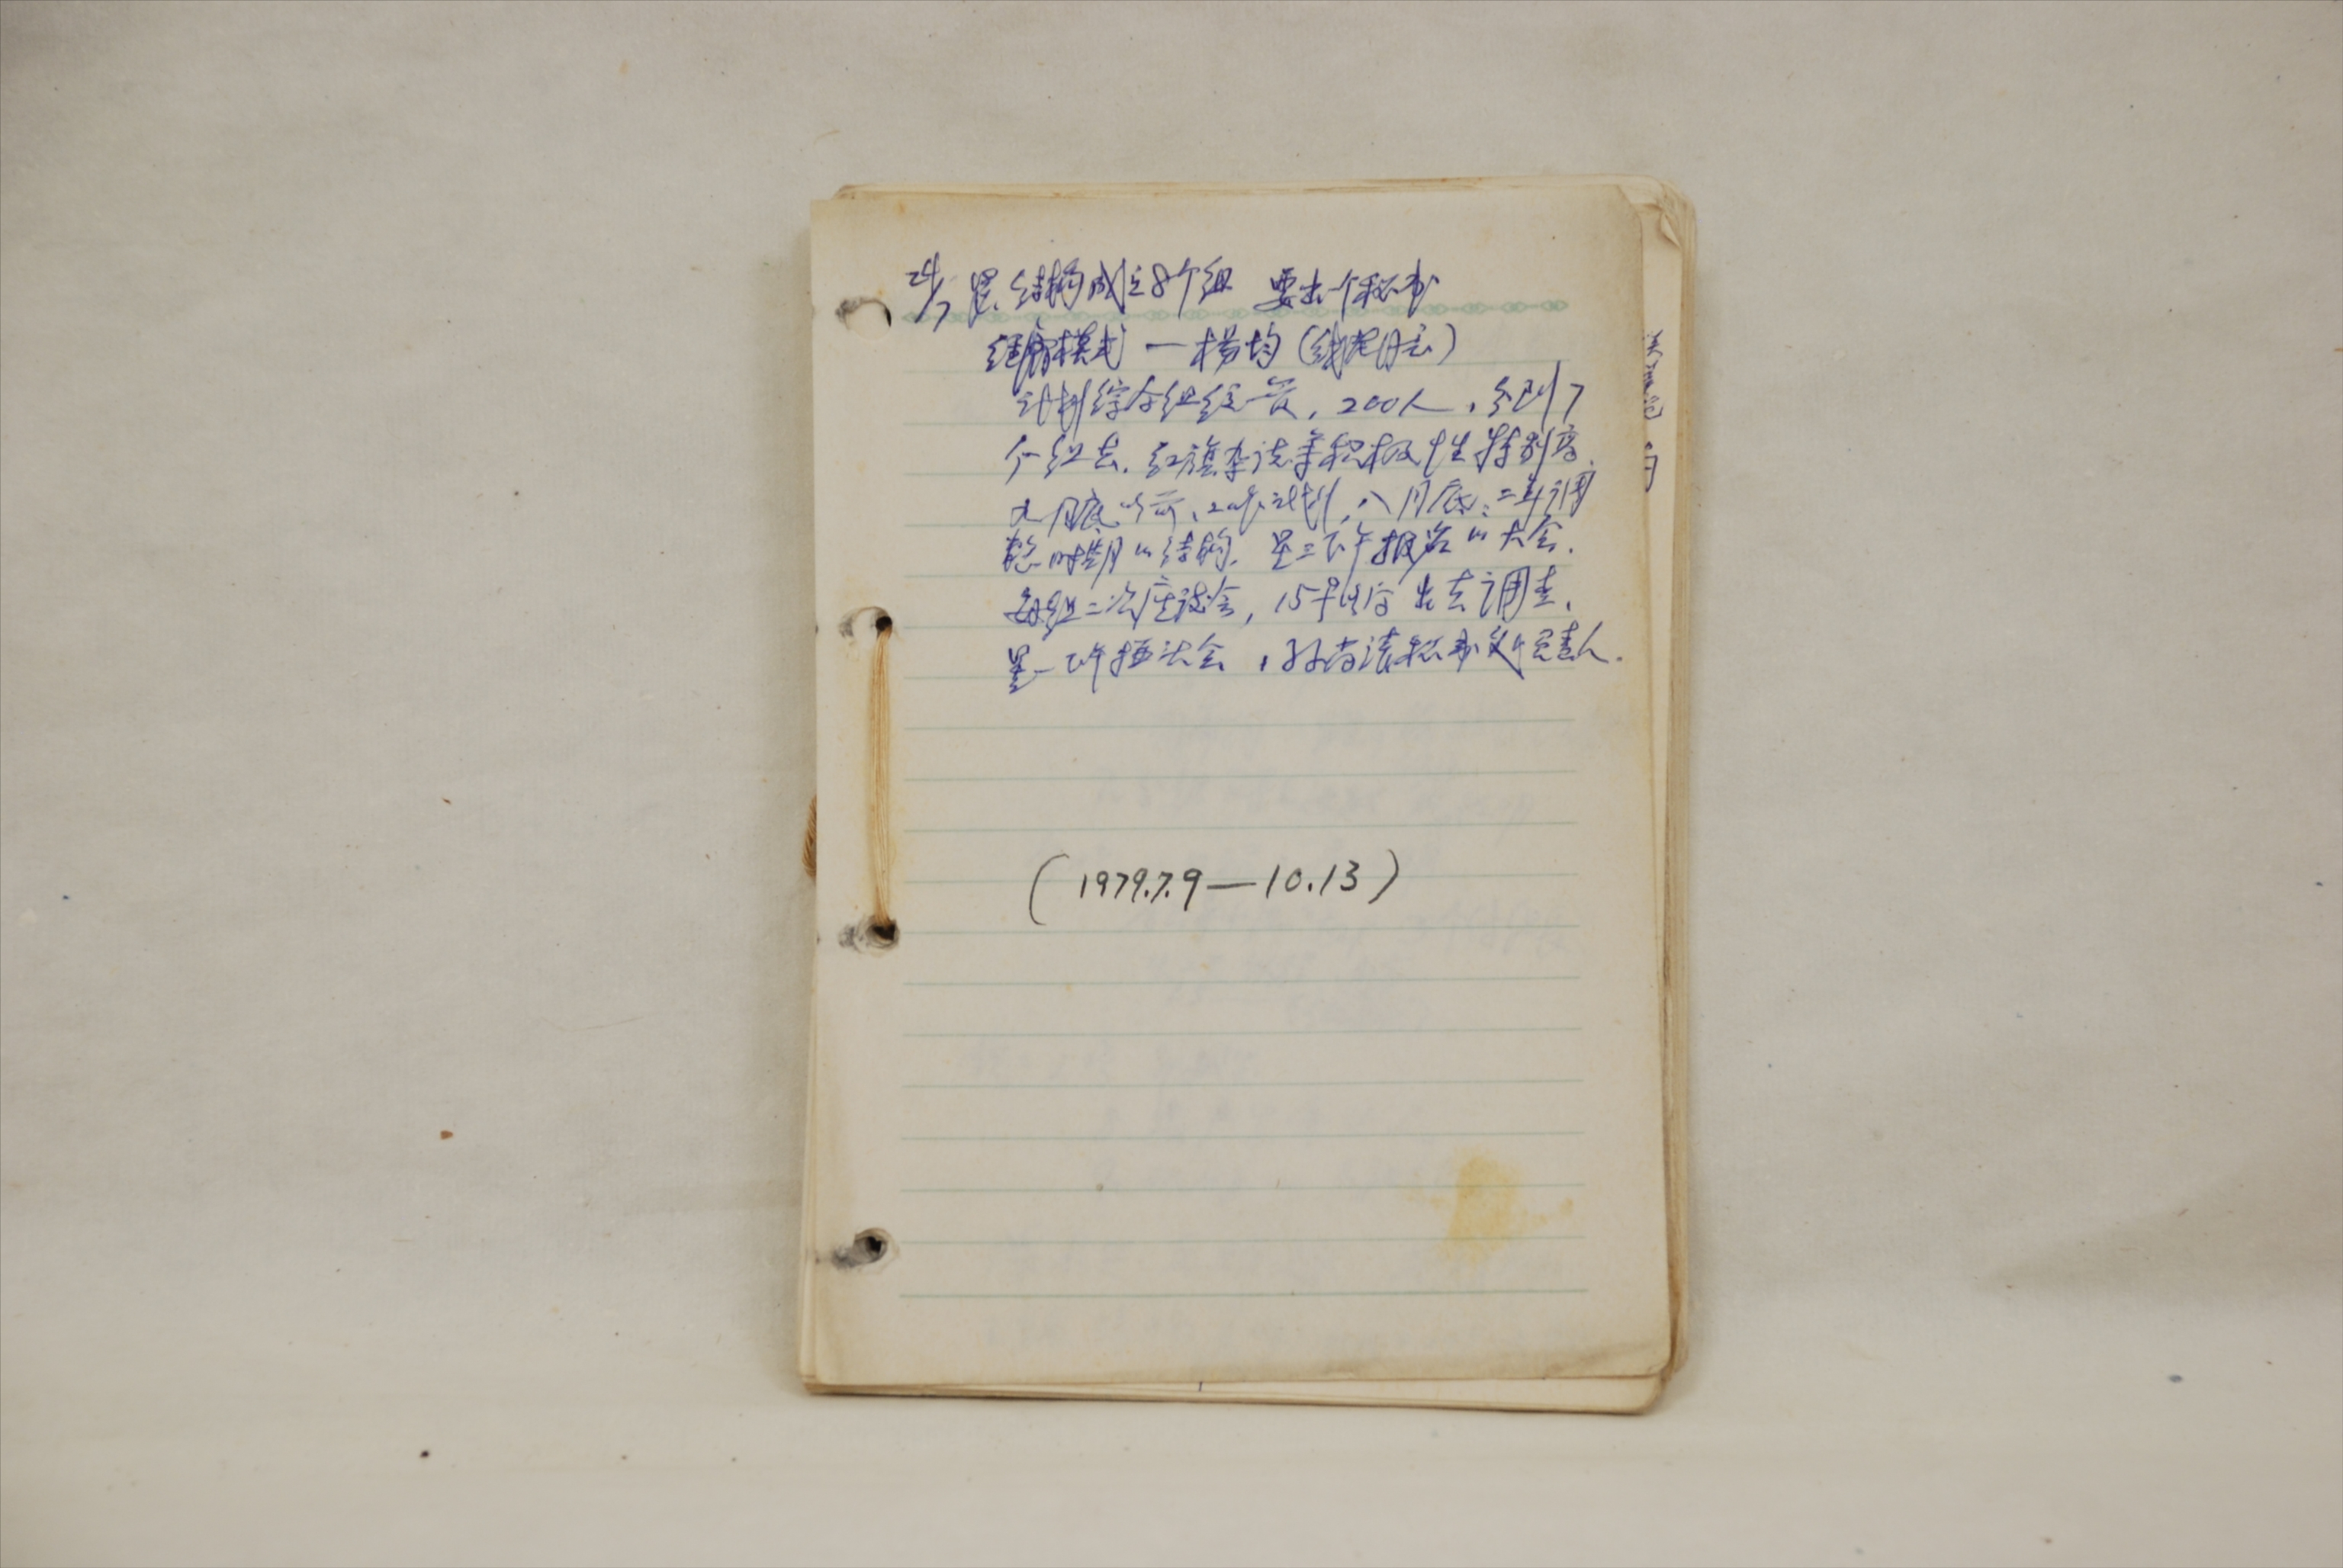 24/7 罗 结构成立8个组 要出一个秘书
经济模式 — 杨均(
计划综合组统一管, 200人, 分到7
个组去. 红旗杂志等积极性特别高.
九月底以前, 计划, 八月底: 二年调
整时期的结构. 星三下午报告的大会.
每组二次座谈会, 15号以后出去调查.
星一下午碰头会, 孙尚清秘书处负责人.
(1979.7.9—10.13)